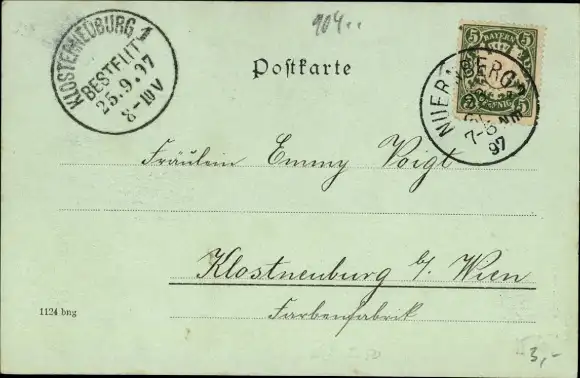 904..
KLOSTERNEUBURG 1
BESTELLT
25.9.97
8-10V
Postkarte
BAYERN
5 5
PFENNIG
NUERNBERG
7-8 NM
97
Fräulein Emmy Voigt
Klostneuburg b/ Wien
Farbenfabrik
1124 bng
3,-